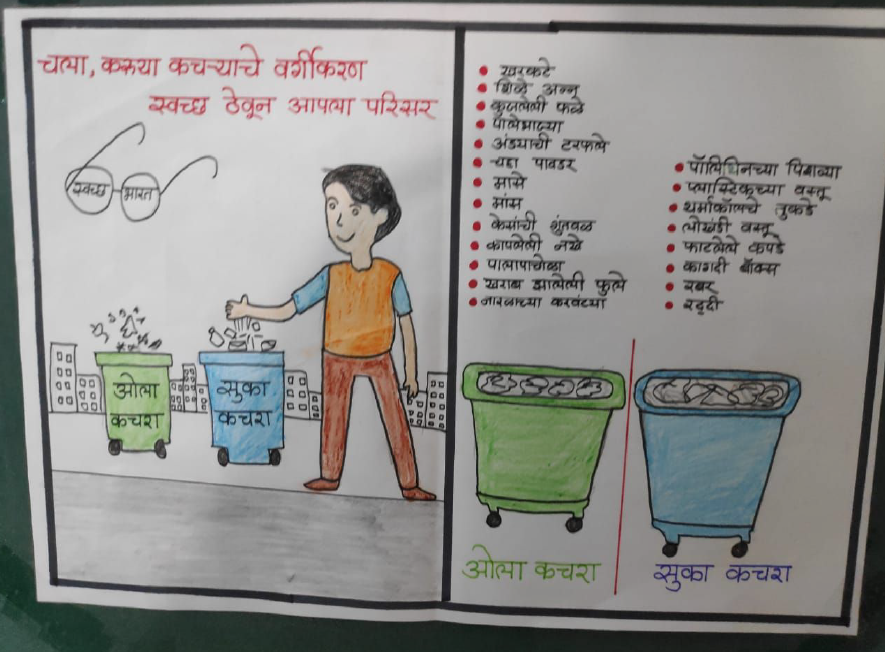 चला, करूया कचऱ्याचे वर्गीकरण
स्वच्छ ठेवून आपला परिसर
स्वच्छ भारत
ओला
कचरा
सुका
कचरा
खरकटे
शिळे अन्न
कुजलेली फळे
पालेभाज्या
अंड्याची टरफले
चहा पावडर
मासे
मांस
केसांची गुंतवळ
कापलेली नखे
पालापाचोळा
खराब झालेली फुले
नारळाच्या करवंट्या
पॉलिथिनच्या पिशव्या
प्लास्टिकच्या वस्तू
थर्माकॉलचे तुकडे
लोखंडी वस्तू
फाटलेले कपडे
कागदी बॉक्स
रबर
रद्दी
ओला कचरा
सुका कचरा